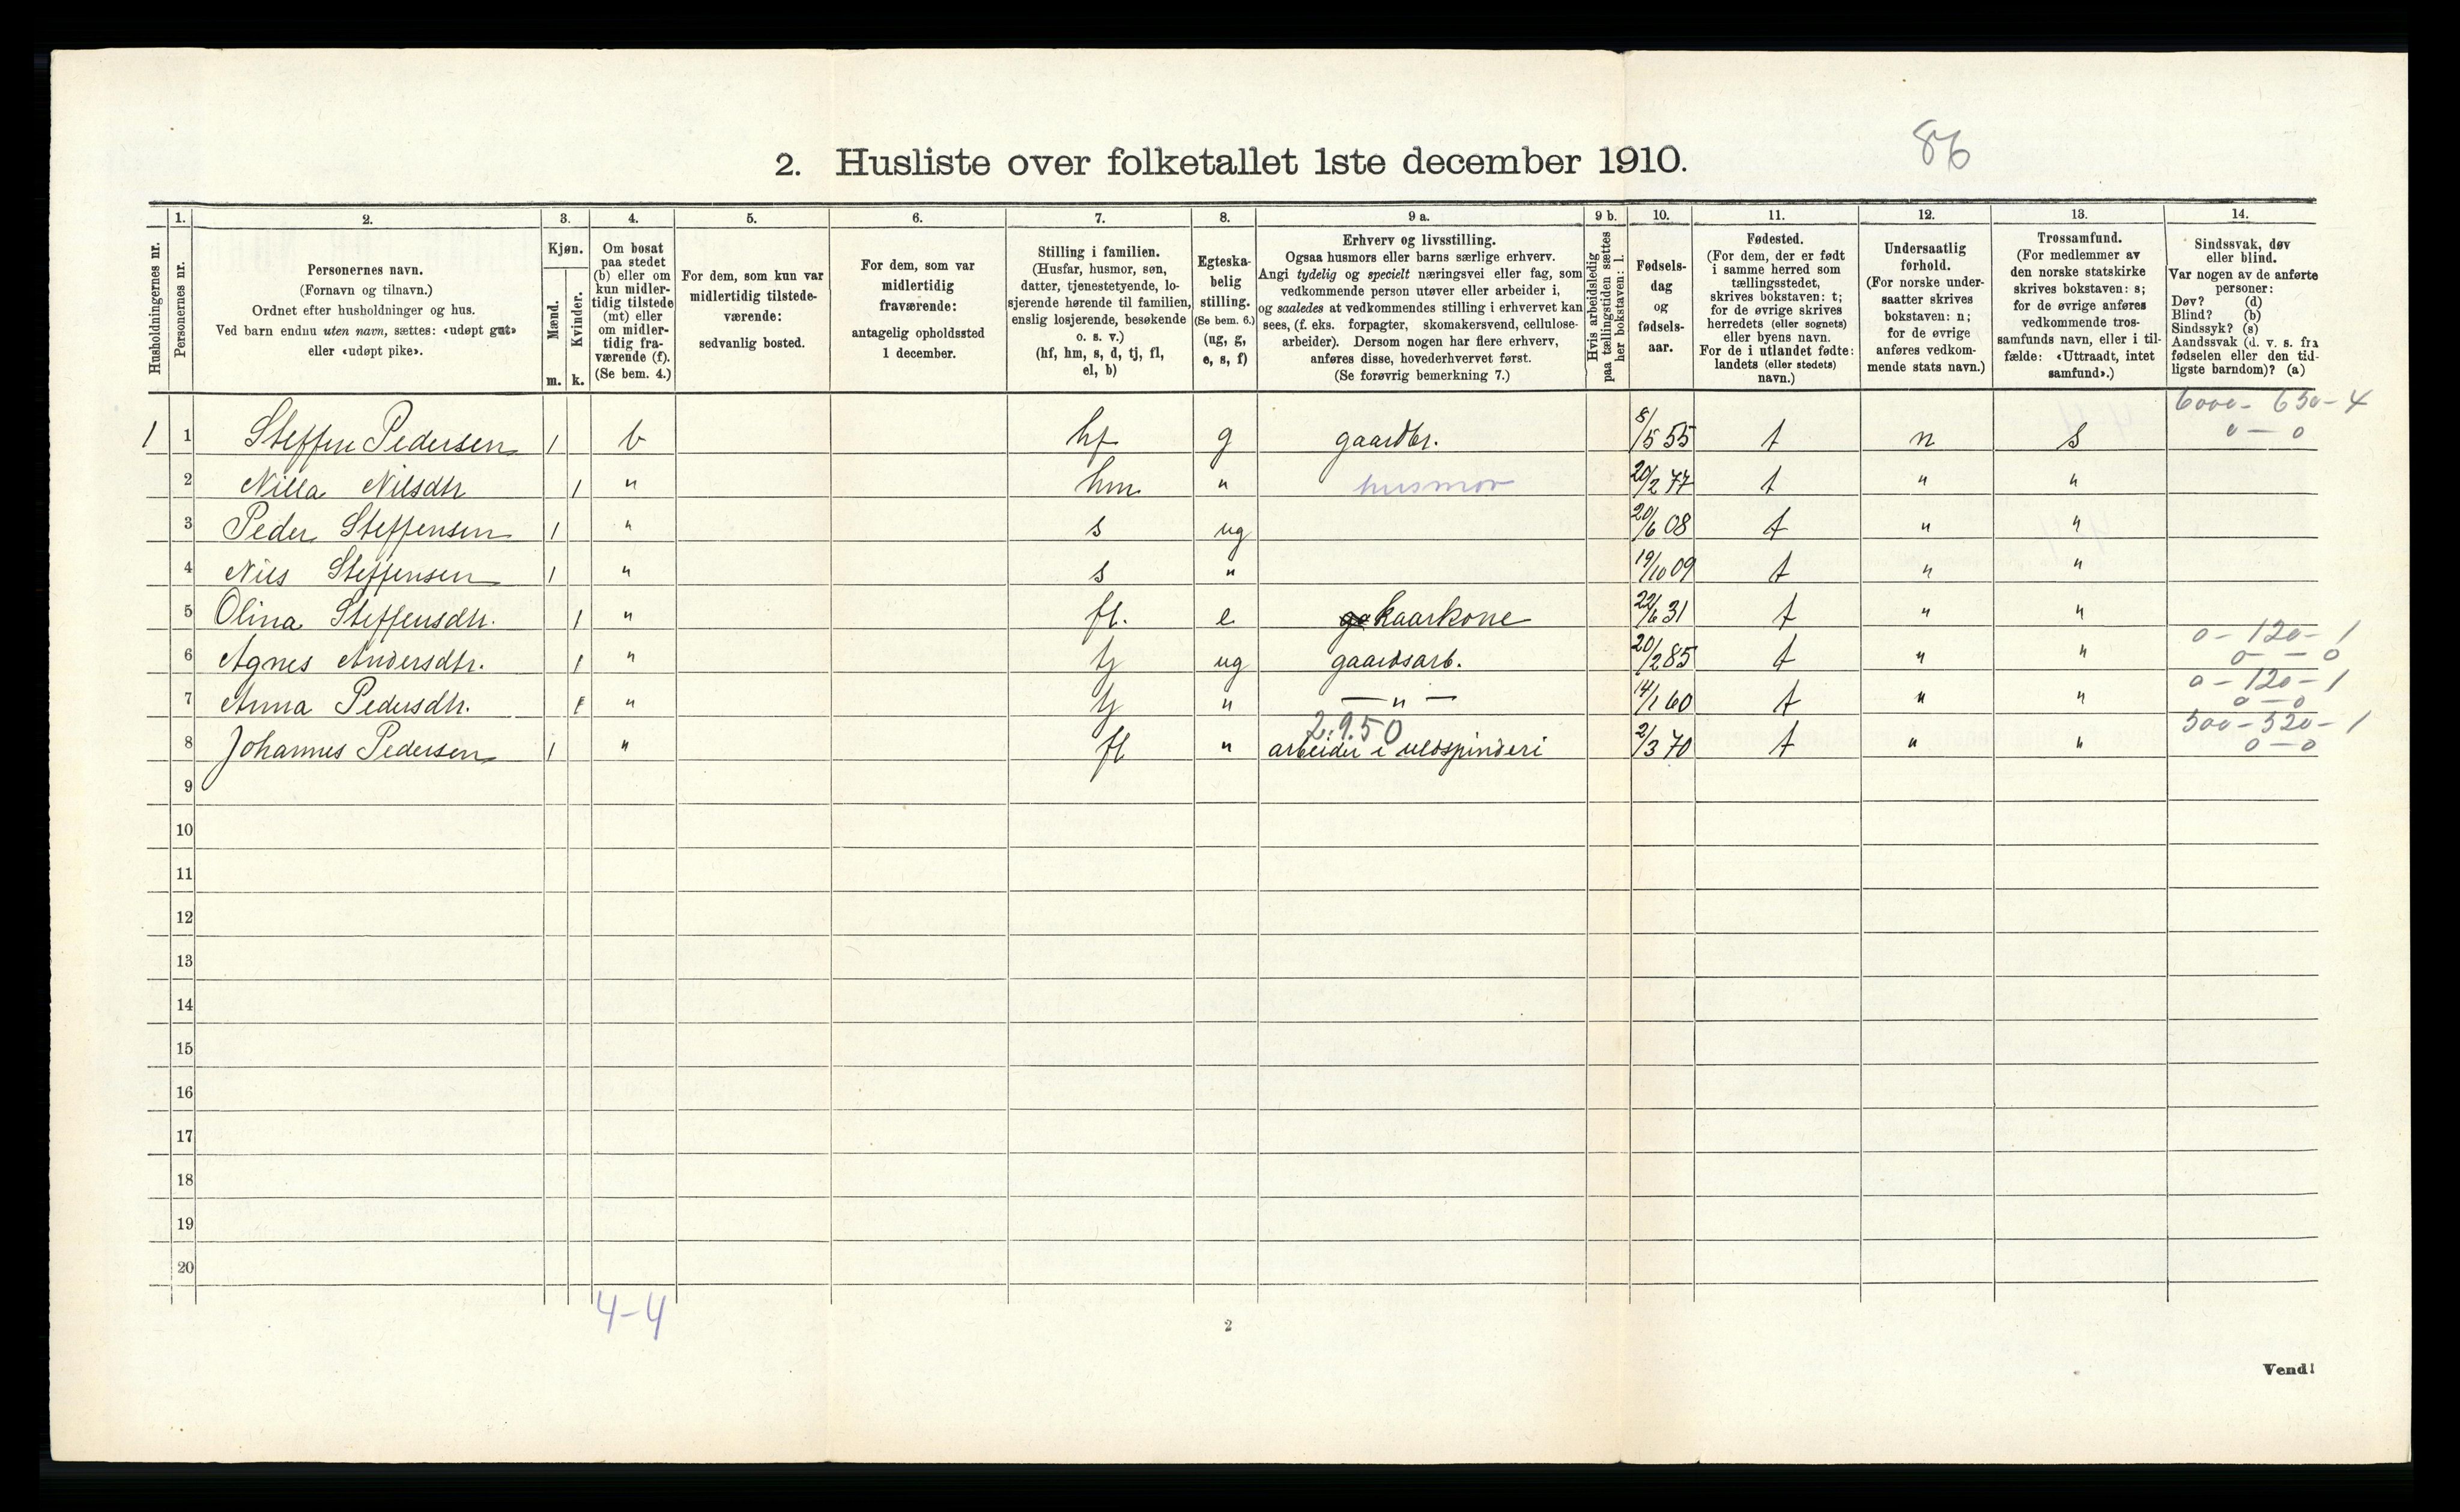 86
2. Husliste over folketallet 1ste december 1910.
Husholdningernes nr.
1.
Personernes nr.
2.
Personernes navn.
(Fornavn og tilnavn.)
Ordnet efter husholdninger og hus.
Ved barn endnu uten navn, sættes: «udøpt gut»
eller «udøpt pike».
3.
Kjøn.
Mænd.
m.
Kvinder.
k.
4.
Om bosat
paa stedet
(b) eller om
kun midler-
tidig tilstede
(mt) eller
om midler-
tidig fra-
værende (f).
(Se bem. 4.)
5.
For dem, som kun var
midlertidig tilstede-
værende:
sedvanlig bosted.
6.
For dem, som var
midlertidig
fraværende:
antagelig opholdssted
1 december.
7.
Stilling i familien.
(Husfar, husmor, søn,
datter, tjenestetyende, lo-
sjerende hørende til familien,
enslig losjerende, besøkende
o. s. v.)
(hf, hm, s, d, tj, fl,
el, b)
8.
Egteska-
belig
stilling.
(Se bem. 6.)
(ug, g,
e, s, f)
9 a.
Erhverv og livsstilling.
Ogsaa husmors eller barns særlige erhverv.
Angi tydelig og specielt næringsvei eller fag, som
vedkommende person utøver eller arbeider i,
og saaledes at vedkommendes stilling i erhvervet kan
sees, (f. eks. forpagter, skomakersvend, cellulose-
arbeider). Dersom nogen har flere erhverv,
anføres disse, hovederhvervet først.
(Se forøvrig bemerkning 7.)
9 b.
Hvis arbeidsledig
paa tællingstiden sættes
her bokstaven: l.
10.
Fødsels-
dag
og
fødsels-
aar.
11.
Fødested.
(For dem, der er født
i samme herred som
tællingsstedet,
skrives bokstaven: t;
for de øvrige skrives
herredets (eller sognets)
eller byens navn.
For de i utlandet fødte:
landets (eller stedets)
navn.)
12.
Undersaatlig
forhold.
(For norske under-
saatter skrives
bokstaven: n;
for de øvrige
anføres vedkom-
mende stats navn.)
13.
Trossamfund.
(For medlemmer av
den norske statskirke
skrives bokstaven: s;
for de øvrige anføres
vedkommende tros-
samfunds navn, eller i til-
fælde: «Uttraadt, intet
samfund».)
14.
Sindssvak, døv
eller blind.
Var nogen av de anførte
personer:
Døv? (d)
Blind? (b)
Sindssyk? (s)
Aandssvak (d. v. s. fra
fødselen eller den tid-
ligste barndom)? (a)
6000 - 630 - 4
1 1 Steffen Pedersen 1 b hf g gaardbr. 8/5 55 t n s 0 — 0
2 Nilla Nilsdtr 1 " hm " husmor 20/2 77 t " "
3 Peder Steffensen 1 " s ug 20/6 08 t " "
4 Nils Steffensen 1 " s " 19/10 09 t " "
5 Olina Steffensdtr. 1 " fl. e kaarkone 22/6 31 t " "
0 - 120 - 1
6 Agnes Andersdtr. 1 " tj ug gaardsarb. 20/2 85 t " " 0 — 0
0 - 120 - 1
7 Anna Pedersdtr. 1 " tj " — " — 14/1 60 t " " 0 — 0
2.9.50 500 - 520 - 1
8 Johannes Pedersen 1 " fl " arbeider i uldspinderi 2/3 70 t " " 0 — 0
9
10
11
12
13
14
15
16
17
18
19
20
4-4
2
Vend!